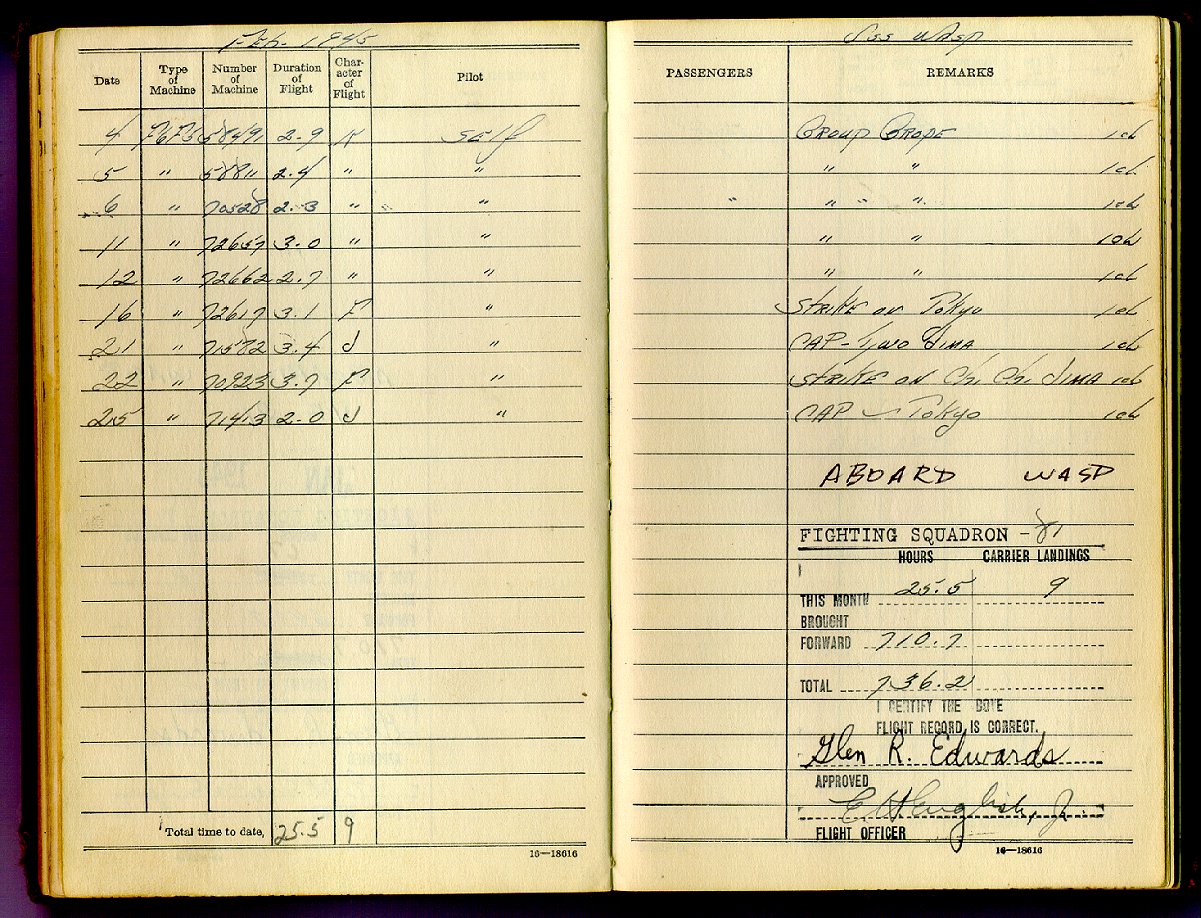 Feb. 1945
Date Type of Machine Number of Machine Duration of Flight Character of Flight Pilot
4 F6F5 58491 2.9 K Self
5 " 58811 2.4 " "
6 " 70528 2.3 " " "
11 " 72657 3.0 " "
12 " 72662 2.7 " "
16 " 72617 3.1 F "
21 " 71582 3.4 J "
22 " 70923 3.7 F "
25 " 71413 2.0 J "
Total time to date, 25.5 9
16—18616
USS Wasp
PASSENGERS REMARKS
GROUP GROPE 1cL
" " 1cL
" " " " 1cL
" " 1cL
" " 1cL
STRIKE ON TOKYO 1cL
CAP - IWO JIMA 1cL
STRIKE ON Chi Chi JIMA 1cL
CAP - TOKYO 1cL
ABOARD WASP
FIGHTING SQUADRON - 81
HOURS CARRIER LANDINGS
THIS MONTH 25.5 9
BROUGHT
FORWARD 710.7
TOTAL 736.2
I CERTIFY THE BOVE
FLIGHT RECORD IS CORRECT.
Glen R. Edwards
APPROVED
E H English, Jr.
FLIGHT OFFICER
16—18616